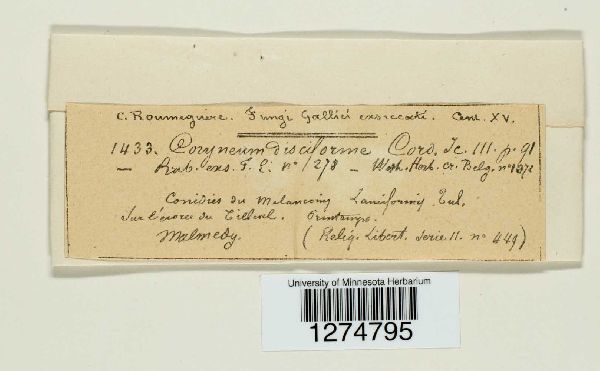 C. Roumeguère. Fungi Gallici exsiccati. Cent. XV.
1433. Coryneum disciforme Cord. Ic. III. p. 91
— Rab. exs. F. E. n° 1278 — West. Herb. cr. Belg. n°
Conidies du Melanconis Lanciformis Tul.
Sur l'écorce du Tilleul. Printemps.
Malmedy. (Reliq. Libert. serie II. n° 449)
University of Minnesota Herbarium
1274795